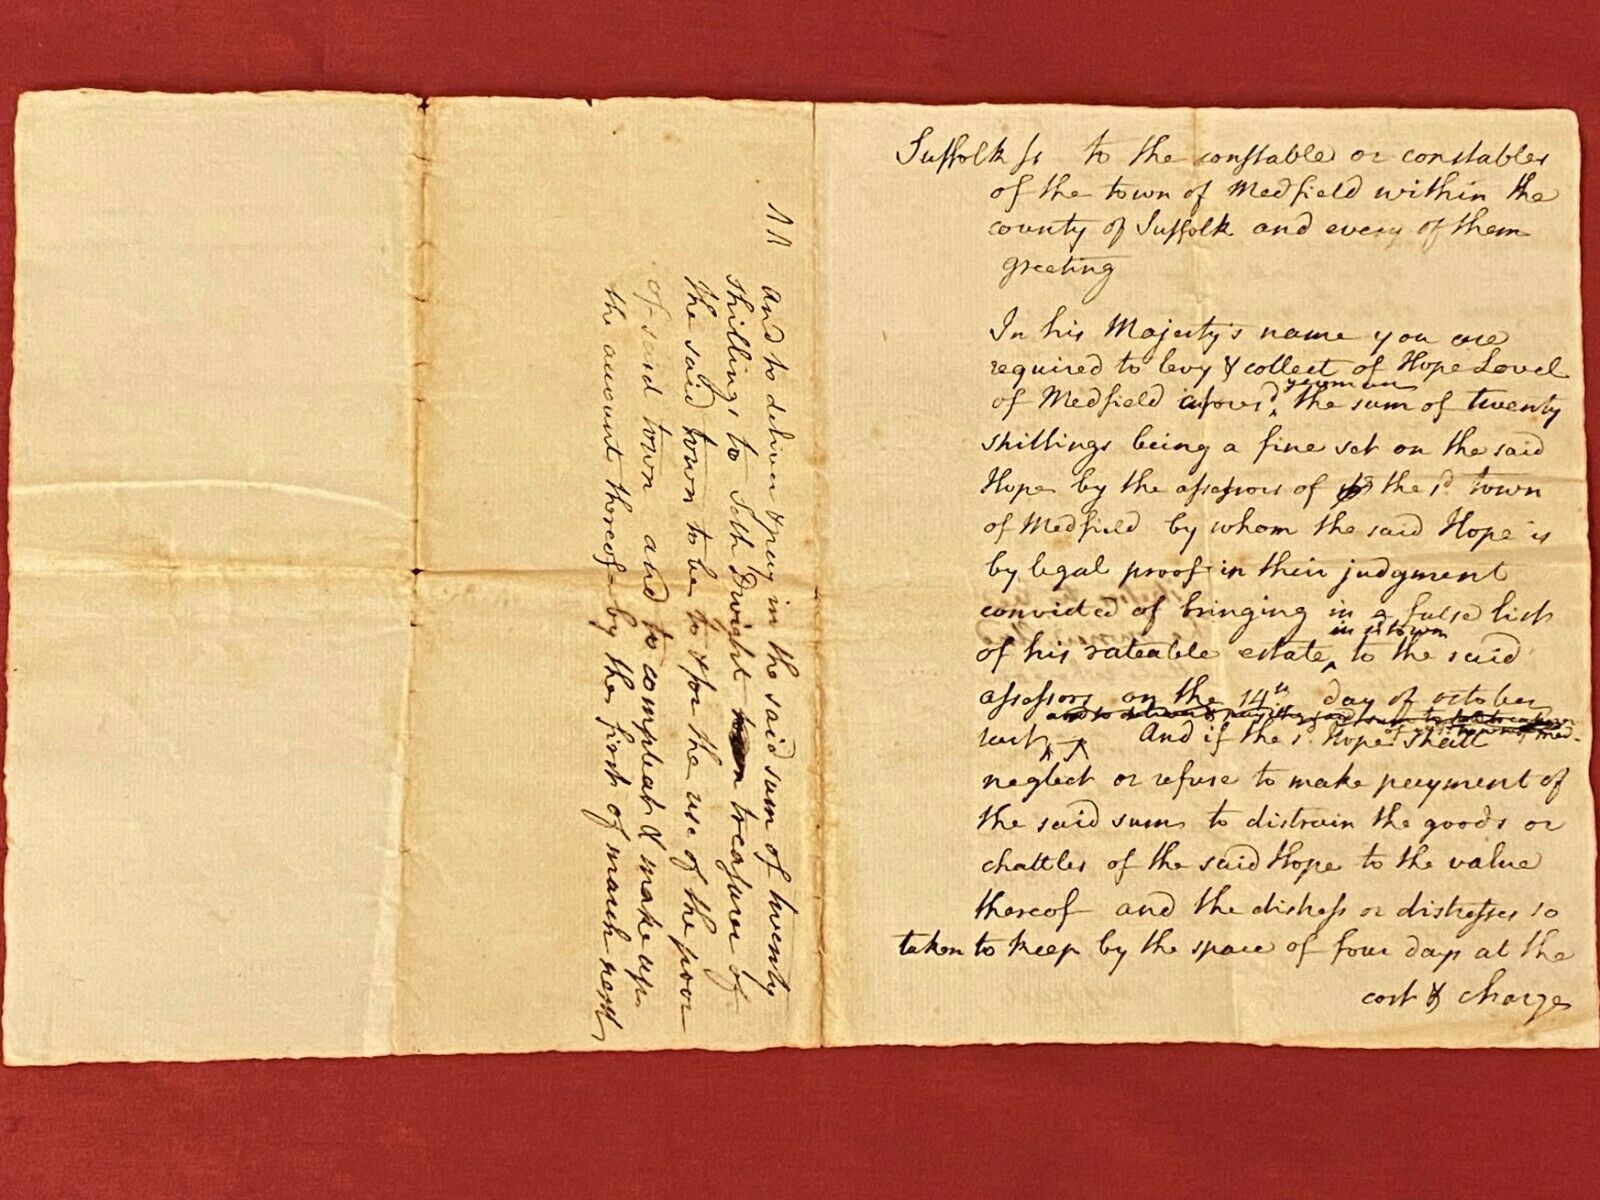 Suffolk ss to the constable or constables
of the town of Medfield within the
county of Suffolk and every of them
greeting
In his Majesty's name you are
required to levy & collect of Hope Lovel
yeoman
of Medfield afores.d ‸ the sum of twenty
shillings being a fine set on the said
Hope by the assessors of the s.d town
of Medfield by whom the said Hope is
by legal proof in their judgment
convicted of bringing in a false list
in s.d town
of his rateable estate ‸ to the said
assessors on the 14th day of october
and to deliver & pay in the said sum to
last ‸ ‸ And if the s.d Hope shall
neglect or refuse to make payment of
the said sum to distrain the goods or
chattles of the said Hope to the value
thereof and the distress or distresses so
taken to keep by the space of four days at the
cost & charge
and to deliver & pay in the said sum of twenty
shillings to Seth Dwight treasurer of
the said town to be to & for the use of the poor
of said town and to compleat & make up
the account thereof by the first of march next